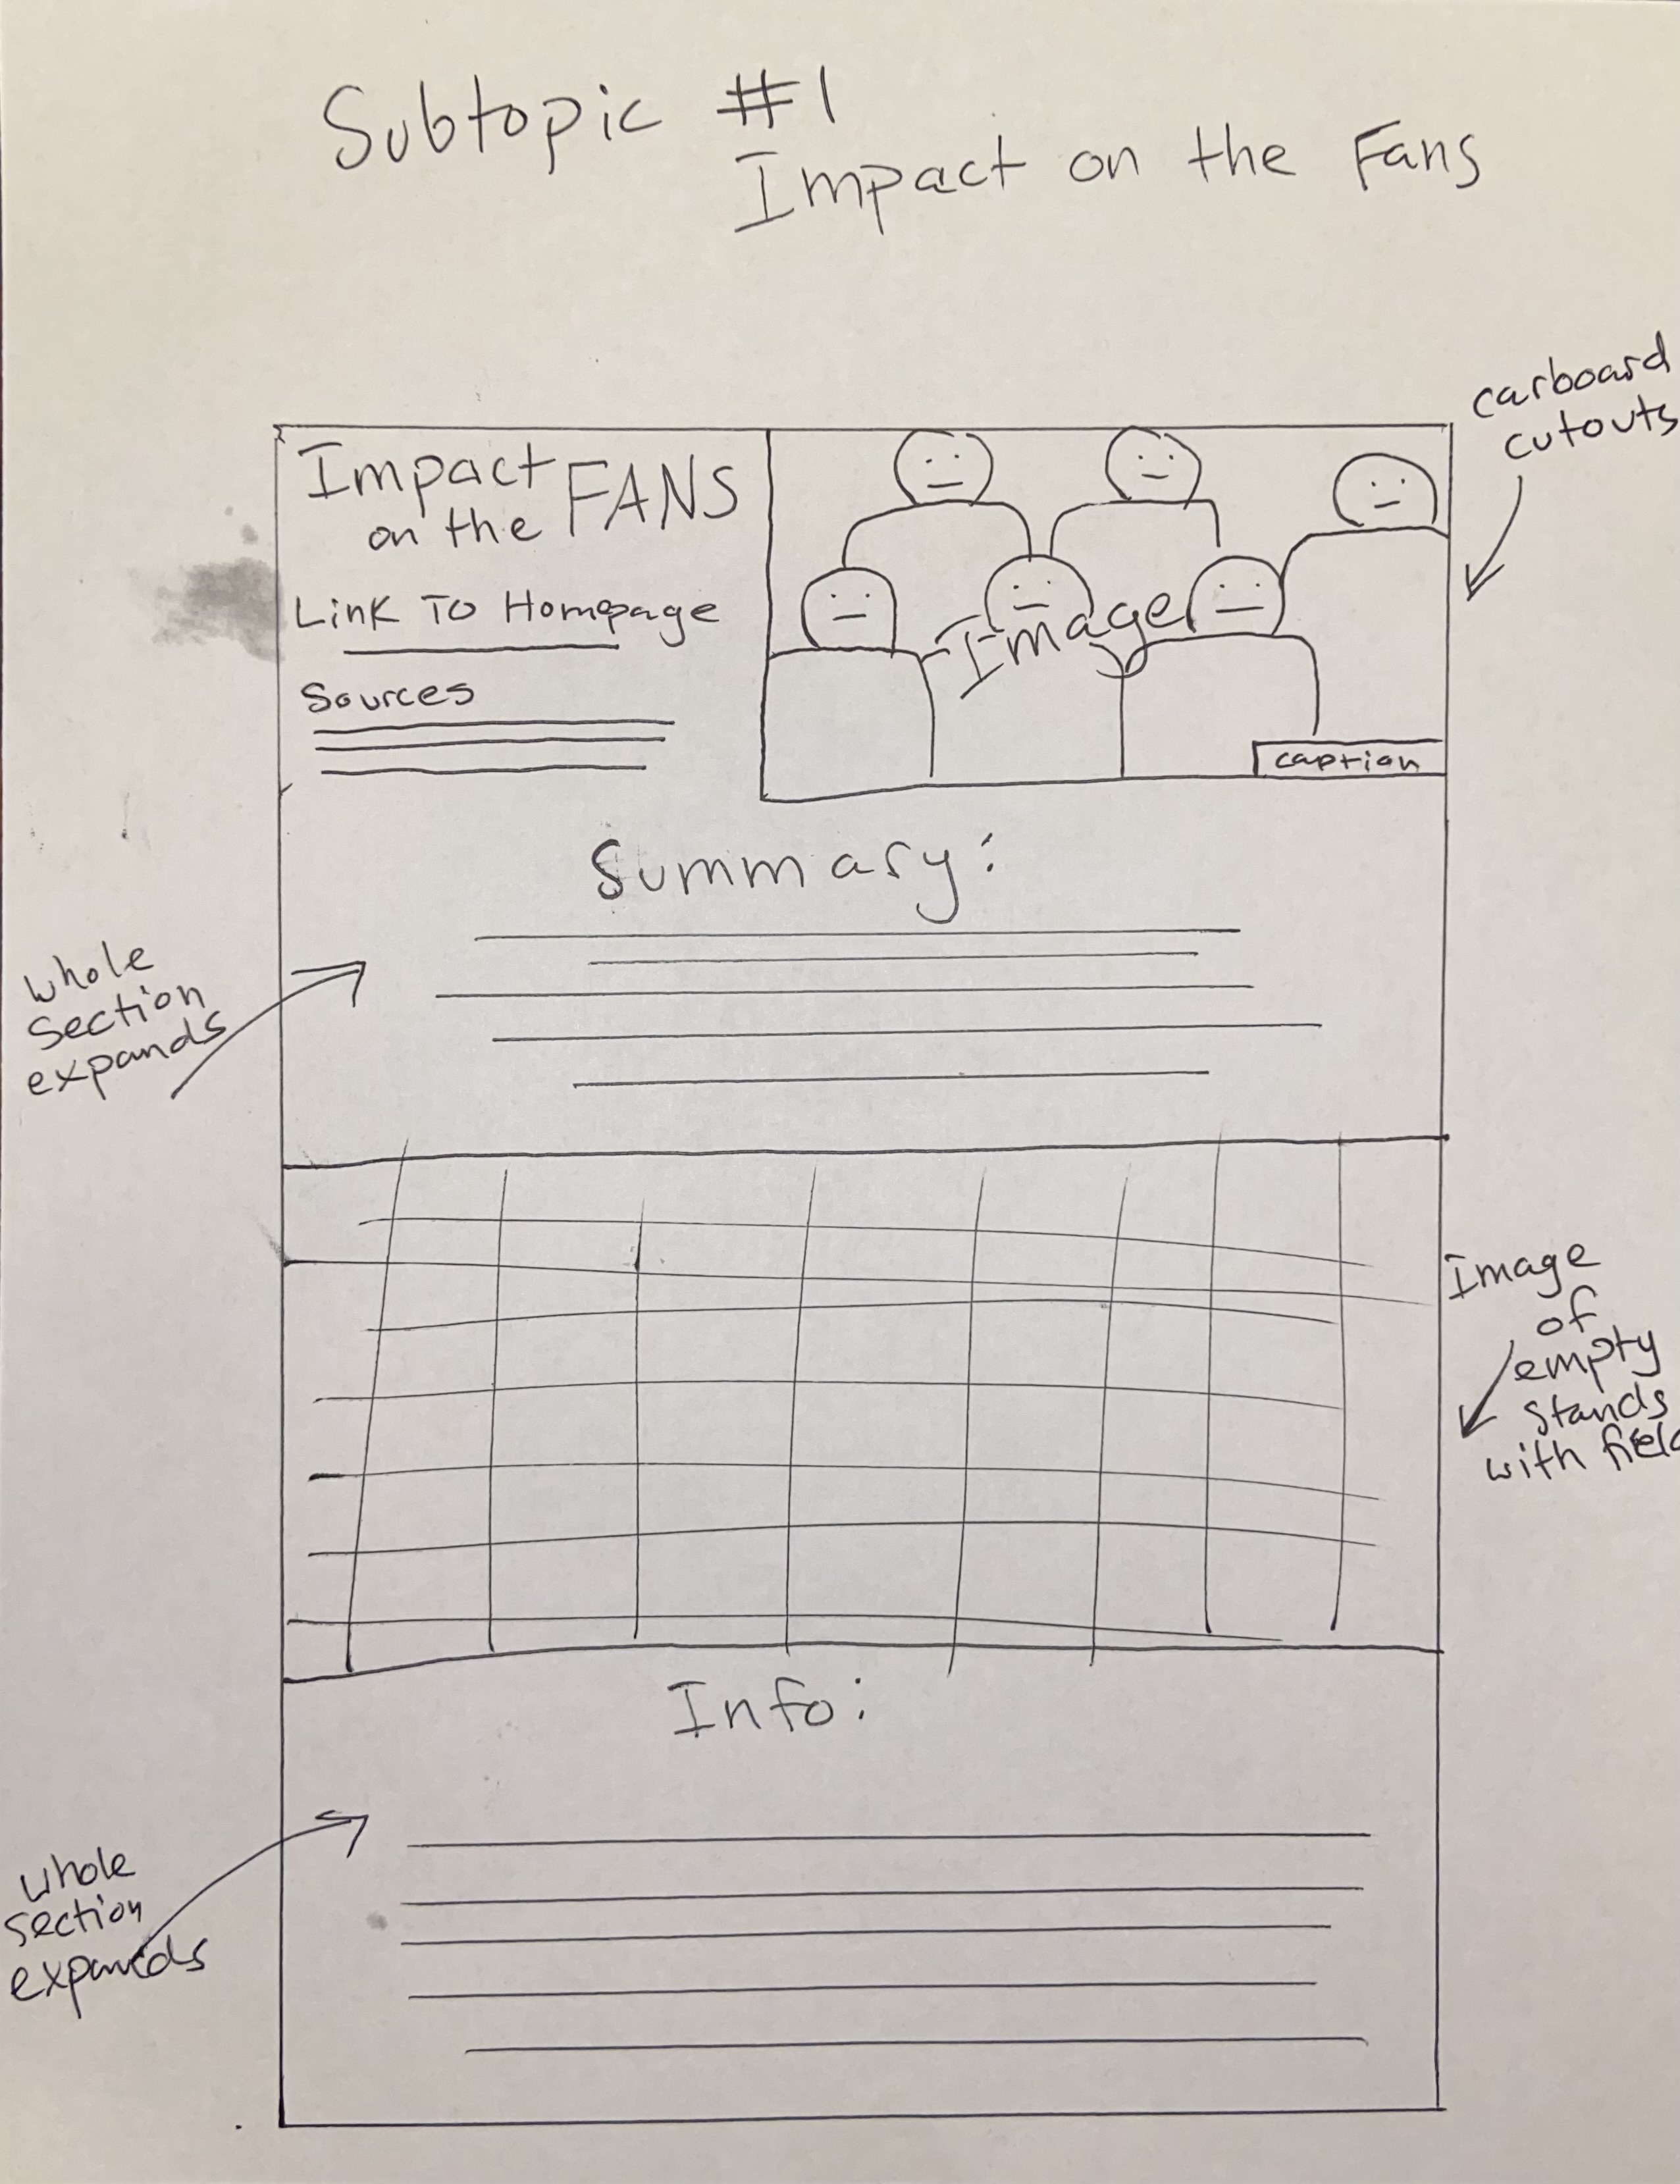 Subtopic #1
Impact on the Fans
carboard
cutouts
Impact
on the FANS
Link To Homepage
Sources
Image
caption
Summary:
whole
section
expands
Image
of
empty
stands
with field
Info:
whole
section
expands